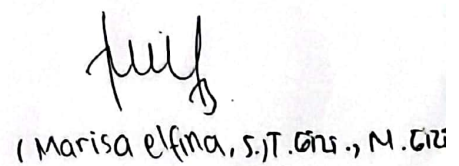 (Marisa elfina, S.)T. Gizi., M. Gizi